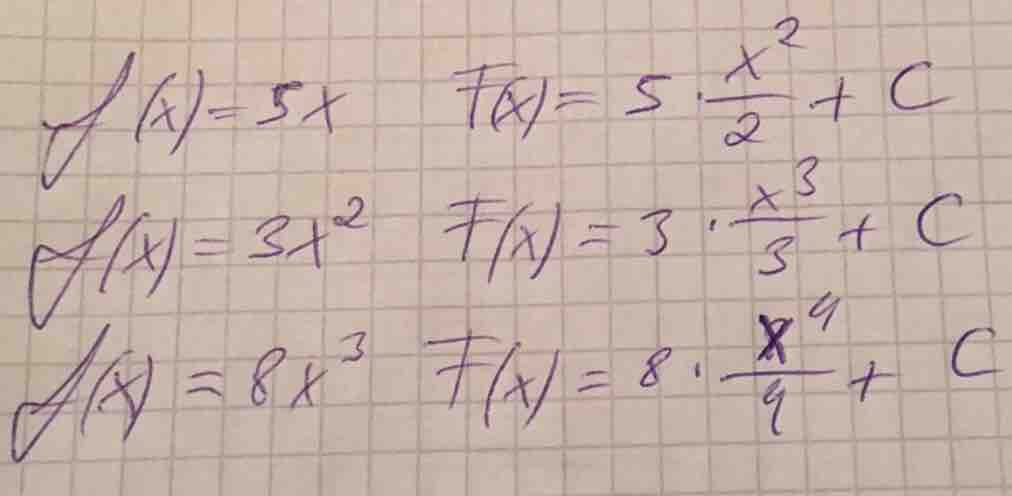 f(x) = 5x F(x) = 5 · x²/2 + C
f(x) = 3x² F(x) = 3 · x³/3 + C
f(x) = 8x³ F(x) = 8 · x⁴/4 + C